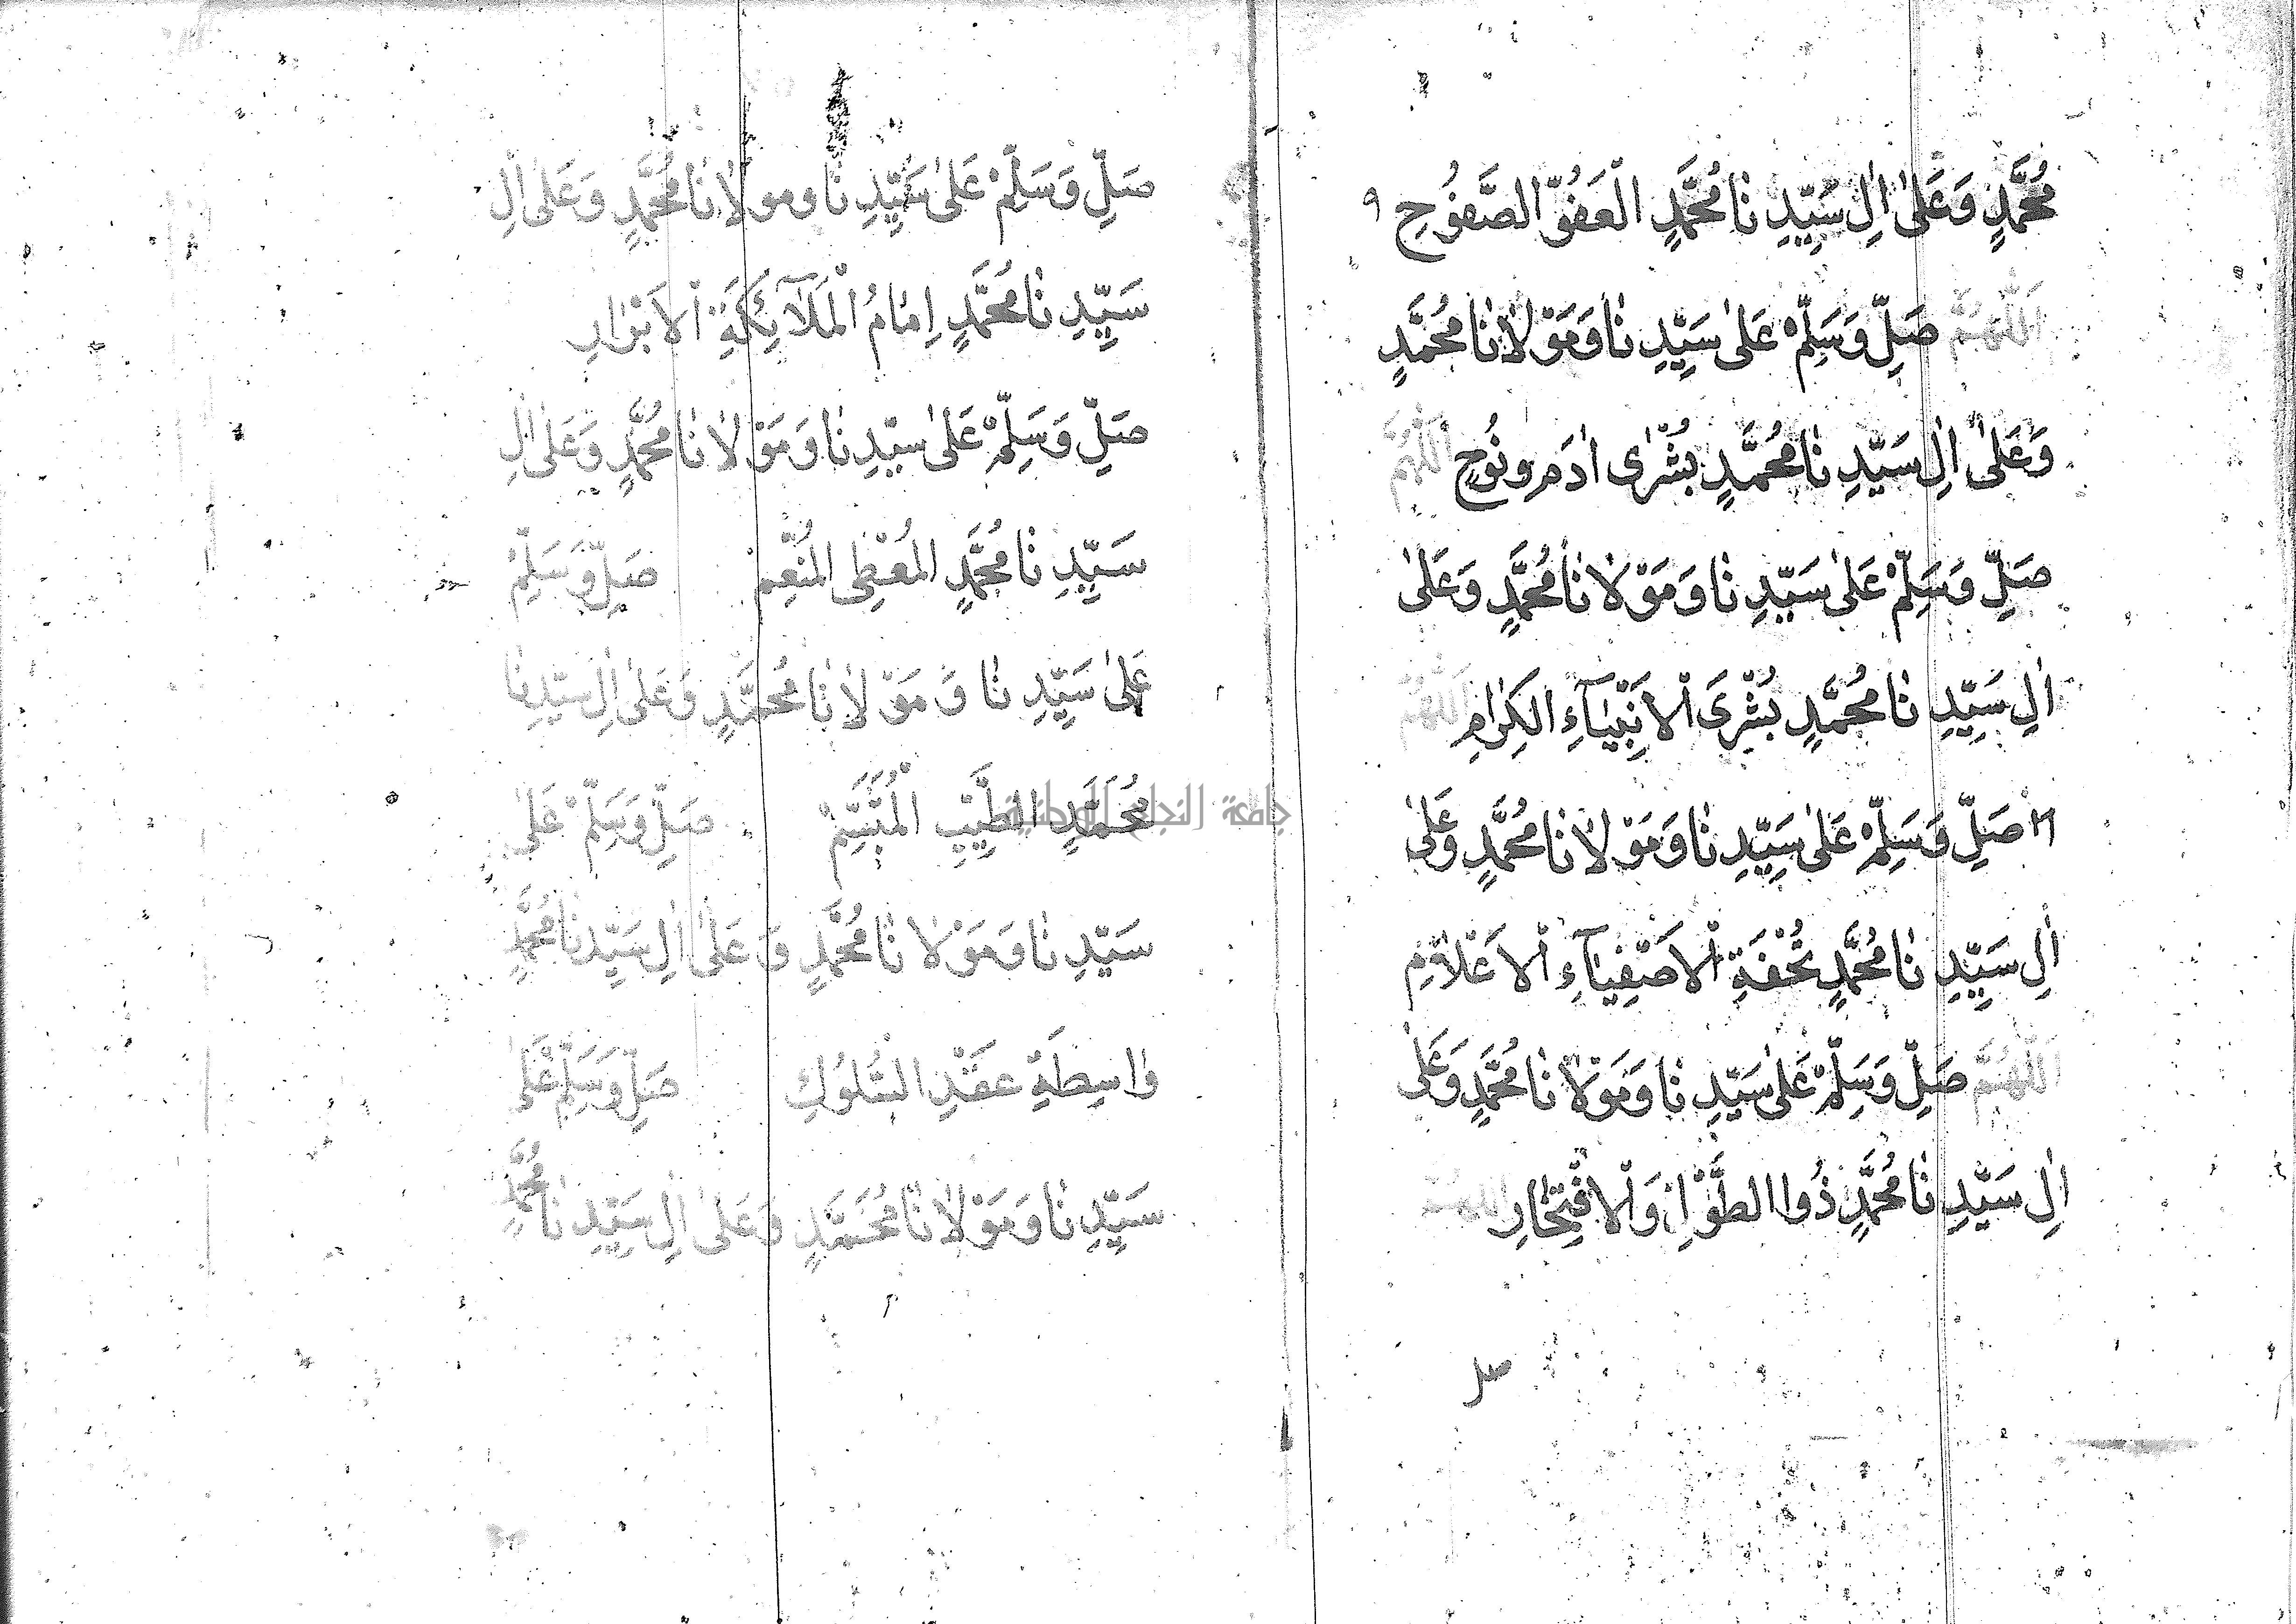 مُحَمَّدٍ وَعَلٰى اٰلِ سَيِّدِنٰا مُحَمَّدٍ الْعَفُوِّ الصَّفُوْحِ ٩
اَللّٰهُمَّ صَلِّ وَسَلِّمْ عَلٰى سَيِّدِنٰا وَمَوْلٰانٰا مُحَمَّدٍ
وَعَلٰى اٰلِ سَيِّدِنٰا مُحَمَّدٍ بُشْرٰى اٰدَمَ ونُوْحٍ اَللّٰهُمَّ
صَلِّ وَسَلِّمْ عَلٰى سَيِّدِنٰا وَمَوْلٰانٰا مُحَمَّدٍ وَعَلٰى
اٰلِ سَيِّدِنٰا مُحَمَّدٍ بُشْرَى الْاَنْبِيٰآءِ الكِرٰامِ اَللّٰهُمَّ
صَلِّ وَسَلِّمْ عَلٰى سَيِّدِنٰا وَمَوْلٰانٰا مُحَمَّدٍ وَعَلٰى
اٰلِ سَيِّدِنٰا مُحَمَّدٍ تُحْفَةِ الْاَصْفِيٰآءِ الْاَعْلٰامِ
اَللّٰهُمَّ صَلِّ وَسَلِّمْ عَلٰى سَيِّدِنٰا وَمَوْلٰانٰا مُحَمَّدٍ وَعَلٰى
اٰلِ سَيِّدِنٰا مُحَمَّدٍ ذُوا الطَّوْلِ وَالْافْتِخٰارِ اَللّٰهُمَّ
صل
صَلِّ وَسَلِّمْ عَلٰى سَيِّدِنٰا ومولٰانٰا مُحَمَّدٍ وَعَلٰى اٰلِ
سَيِّدِنٰا مُحَمَّدٍ اِمٰامُ الْمَلٰآئِكَةِ الْاَبْرٰارِ
صَلِّ وَسَلِّمْ عَلٰى سيّدِنٰا وَمَوْلٰانٰا مُحَمَّدٍ وَعَلٰى اٰلِ
سَيِّدِنٰا مُحَمَّدٍ المُعْطِى المُنْعِمْ صَلِّ وَسَلِّمْ
عَلٰى سَيِّدِنٰا وَمَوْلٰانٰا مُحَمَّدٍ وَعَلٰى اٰلِ سَيّدِنٰا
مُحَمَّدٍ الطَّيِّبِ الْمُتَبَسِّمْ صَلِّ وَسَلِّمْ عَلٰى
سَيّدِنٰا وَمَوْلٰانٰا مُحَمَّدٍ وَعَلٰى اٰلِ سَيِّدِنٰا مُحَمَّدٍ
وٰاسِطَةِ عقْدِ السُّلُوْكِ صَلِّ وَسَلِّمْ عَلٰى
سَيِّدِنٰا وَمَوْلٰانٰا مُحَمَّدٍ وَعَلٰى اٰلِ سَيِّدِنٰا مُحَمَّدٍ
جامعة النجاح الوطنية